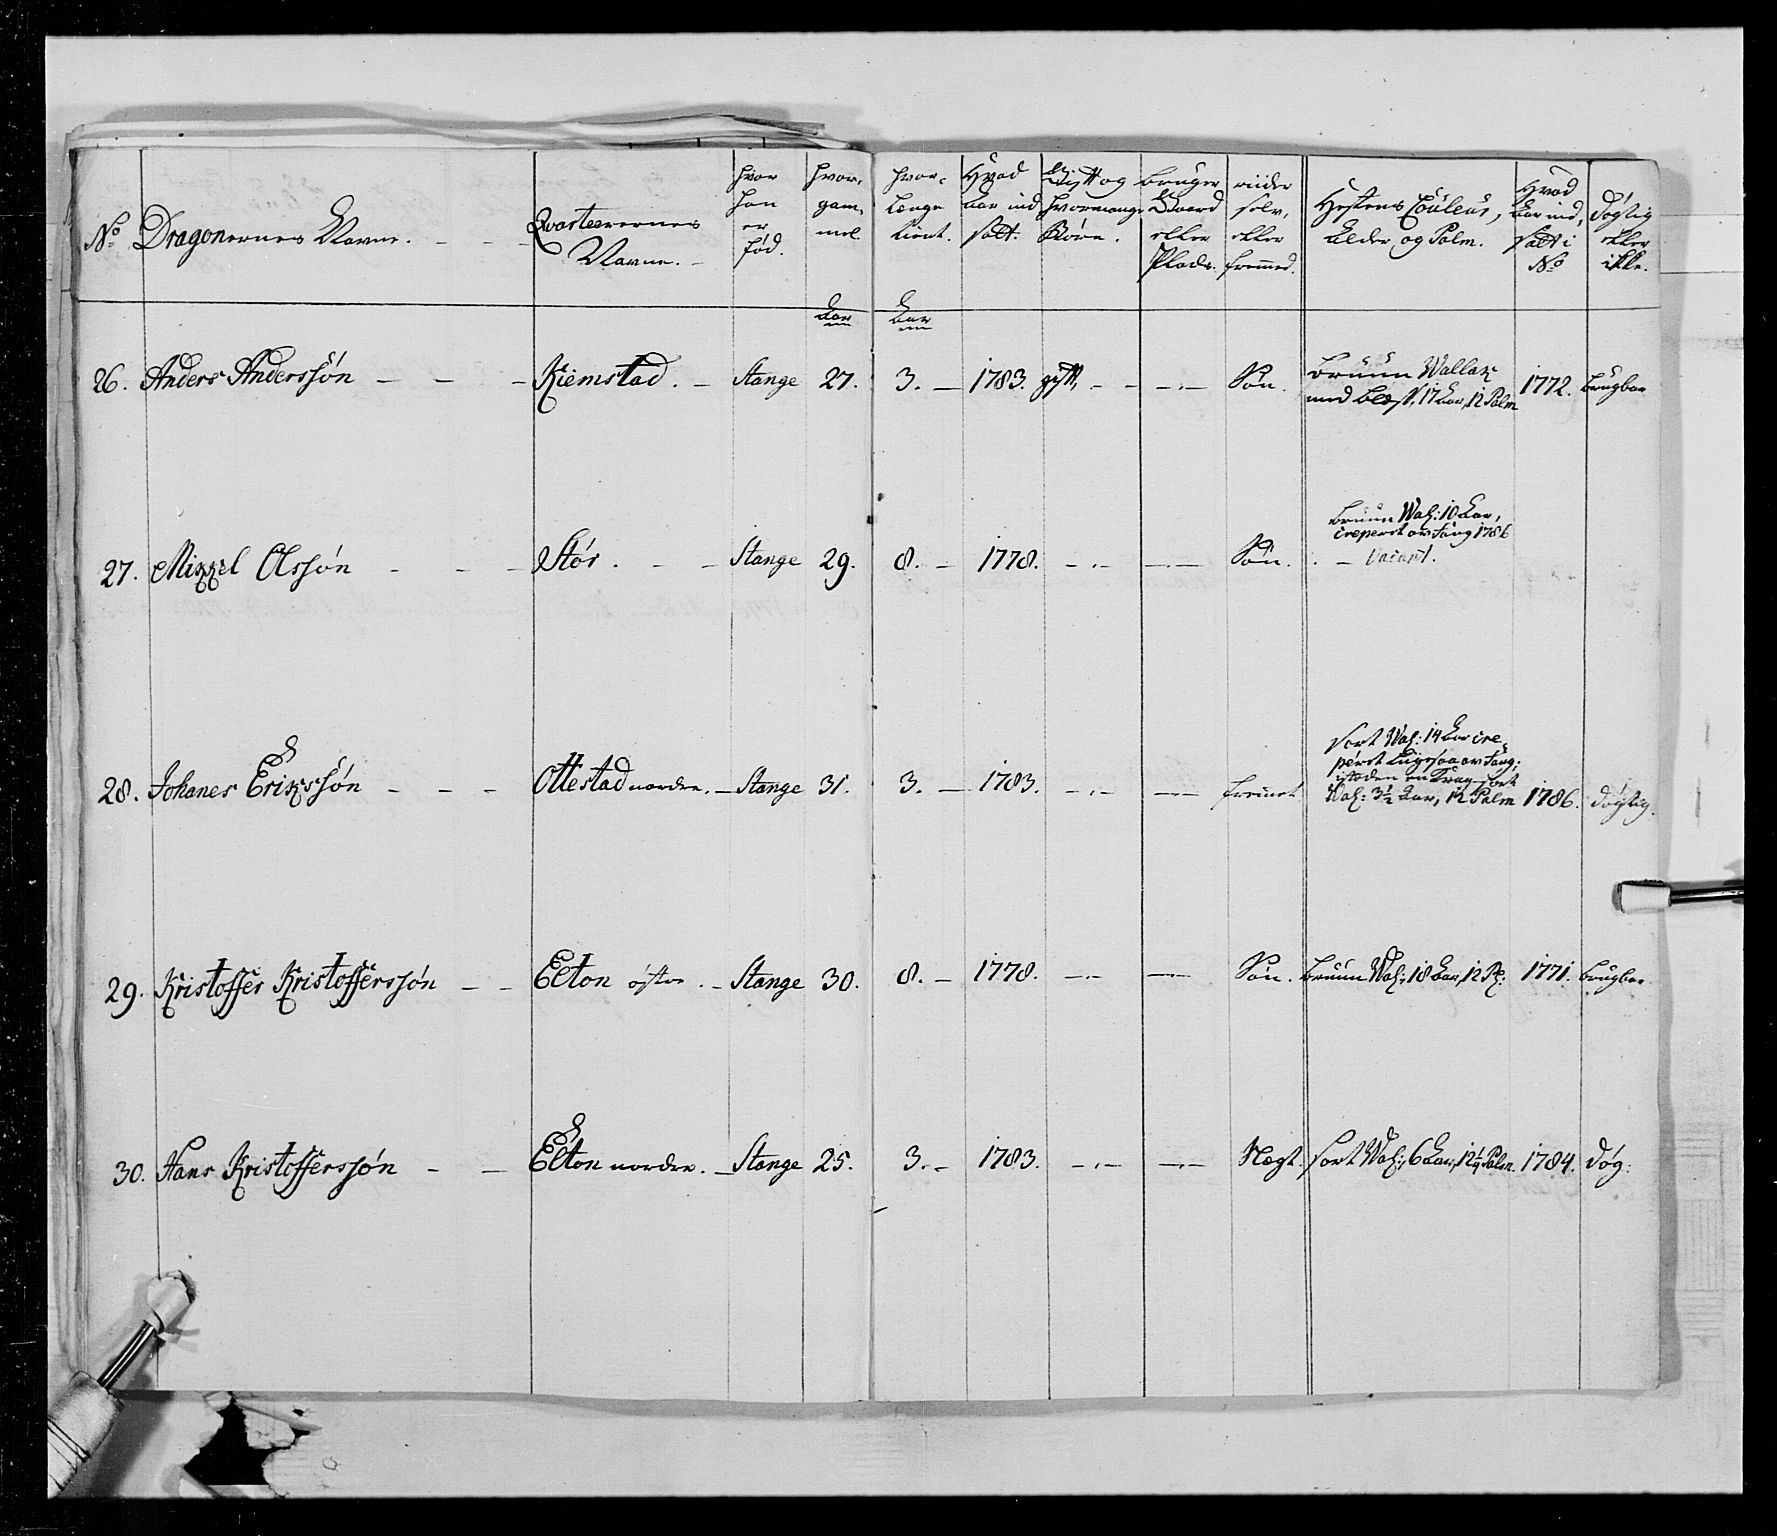 No Dragonernes Navne. Qvarteerernes Navne. hvor han er fød. hvor gam mel hvor længe tient. Hvad Aar ind satt. Gift og hvormange Börn. bruger Gaard eller Plads. riider selv, eller fremmed. Hestens Couleur, Alder og Palm. Hvad Aar ind, satt i No dögtig eller ikke.
Aar Aar
26. Anders Anderssön - - - Kiemstad. - Stange 27. 3. - 1783. gift, - - -.- Sön. bruun Wallak
med blæs, 17 Aar, 12 Palm 1772. brugbar
bruun Wal: 10 Aar,
creperet av 1786
27. Mikkel Olssön - - - Stör. - - Stange 29. 8. - 1778. -.- -.- Sön. . - Vacant.
sort Wal: 14 Aar cre
peret
isteden en sort
28. Johanes Erikssön - - - Ottestad nordre. - Stange 31. 3. - 1783. -.- -.- fremet Wal: 3½ Aar, 12 Palm 1786. dögtig.
29. Kristoffer Kristofferssön - - Elton östre. - Stange 30. 8. - 1778. -.- -.- Sön. bruun Wal: 18 Aar, 12 P: 1771. brugbar
30. Hans Kristofferssön - - Elton nordre. - Stange 25. 3. - 1783. -.- -.- Nægt. sort Wal: 6 Aar, 12¼ Palm. 1784. dög: